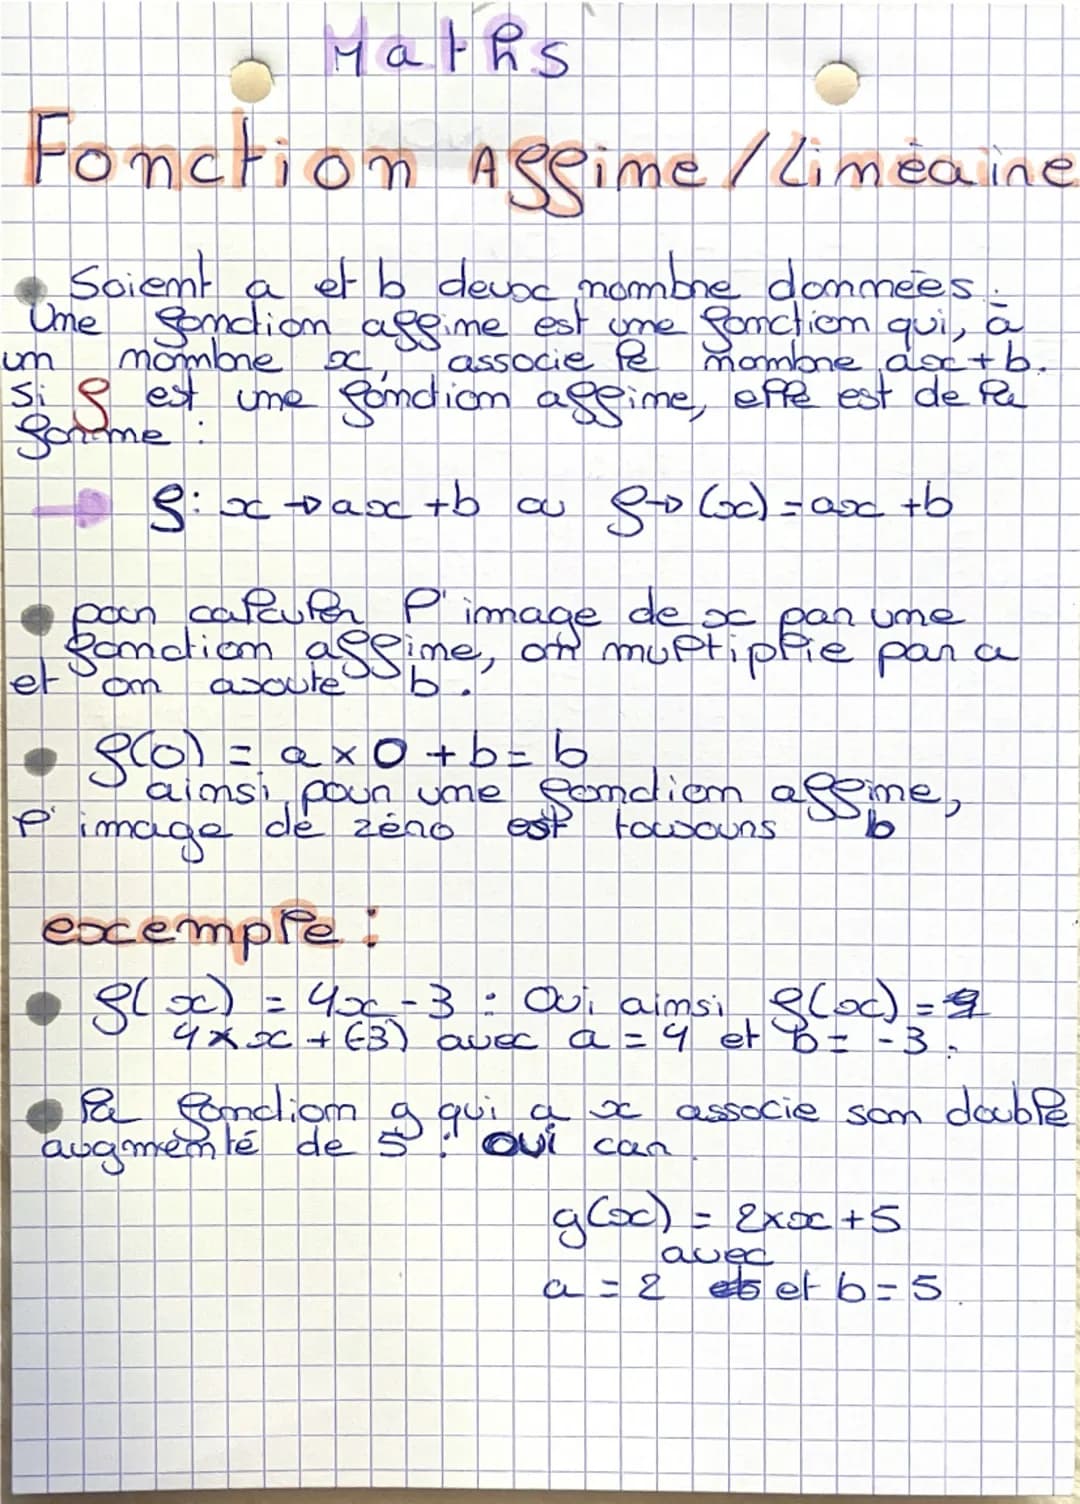 Maths
Fonction Affine/Linéaire
Soient a et b deux nombre donneés.
Une fonction affine est une fonction qui, à
un nombre x, associe le nombre ax+b.
Si f est une fonction affine, elle est de la
forme :
f: x → ax +b ou f→ (x) = ax +b
pour calculer l'image de x par une
fonction affine, on multiplie par a
et on ajoute b.
f(0) = a x 0 + b = b
ainsi, pour une fonction affine,
l'image de zéro est toujours b
exemple :
f(x) = 4x - 3 : Oui ainsi f(x) =
4 × x + (-3) avec a = 4 et b = -3.
la fonction g qui a x associe son double
augmenté de 5 : oui car
g(x) = 2xx +5
avec
a = 2 et b = 5.